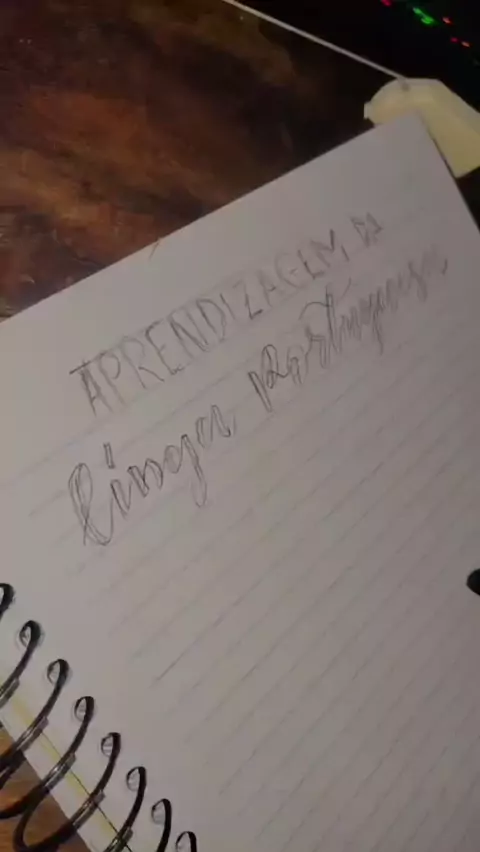 APRENDIZAGEM DA
língua Portuguesa